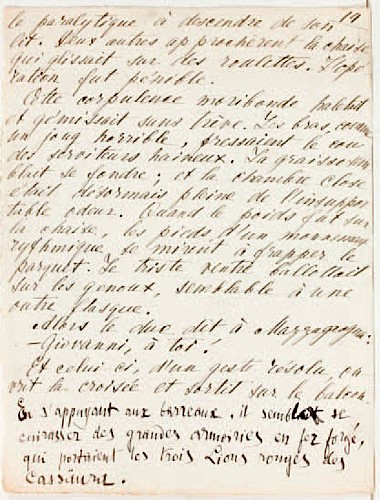 19
le paralytique à descendre de son
lit. Deux autres approchèrent la chaise
qui glissait sur des roulettes. L'opé
ration fut pénible.
Cette corpulence moribonde haletait
et gémissait sans trève. Les bras, comme
un joug horrible, pressaient le cou
des serviteurs haineux. La graisse sem
blait se fondre; et la chambre close
était désormais pleine de l'insuppor
table odeur. Quand le poids fut sur
la chaise, les pieds d'un mouvement
rythmique se mirent à frapper le
parquet. Le triste ventre ballottait
sur les genoux, semblable à une
outre flasque.
Alors le duc dit à
—Giovanni, à toi!
Et celui-ci, d'un geste résolu ou
vrit la croisée et sortit sur le balcon.
En s'appuyant aux barreaux, il semblait se
cuirasser des grandes armoiries en fer forgé,
qui portaient les trois Lions rouges des
Cassaura.